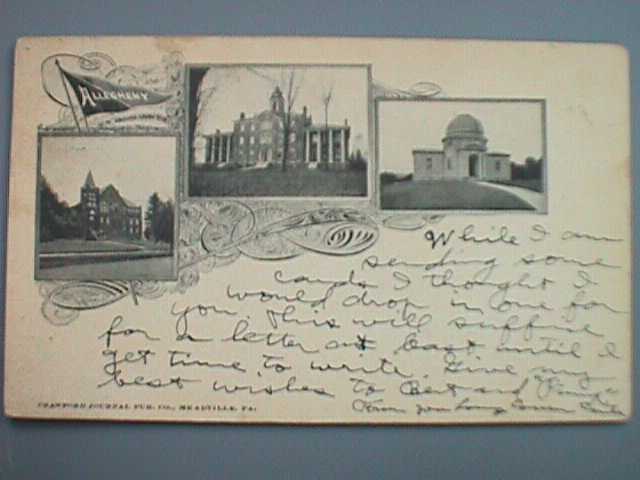 ALLEGHENY
While I am
sending some
cards I thought I
would drop in one for
you. This will suffice
for a letter at least until I
get time to write. Give my
best wishes to Bert and
From your loving
CRAWFORD JOURNAL PUB. CO., MEADVILLE, PA.